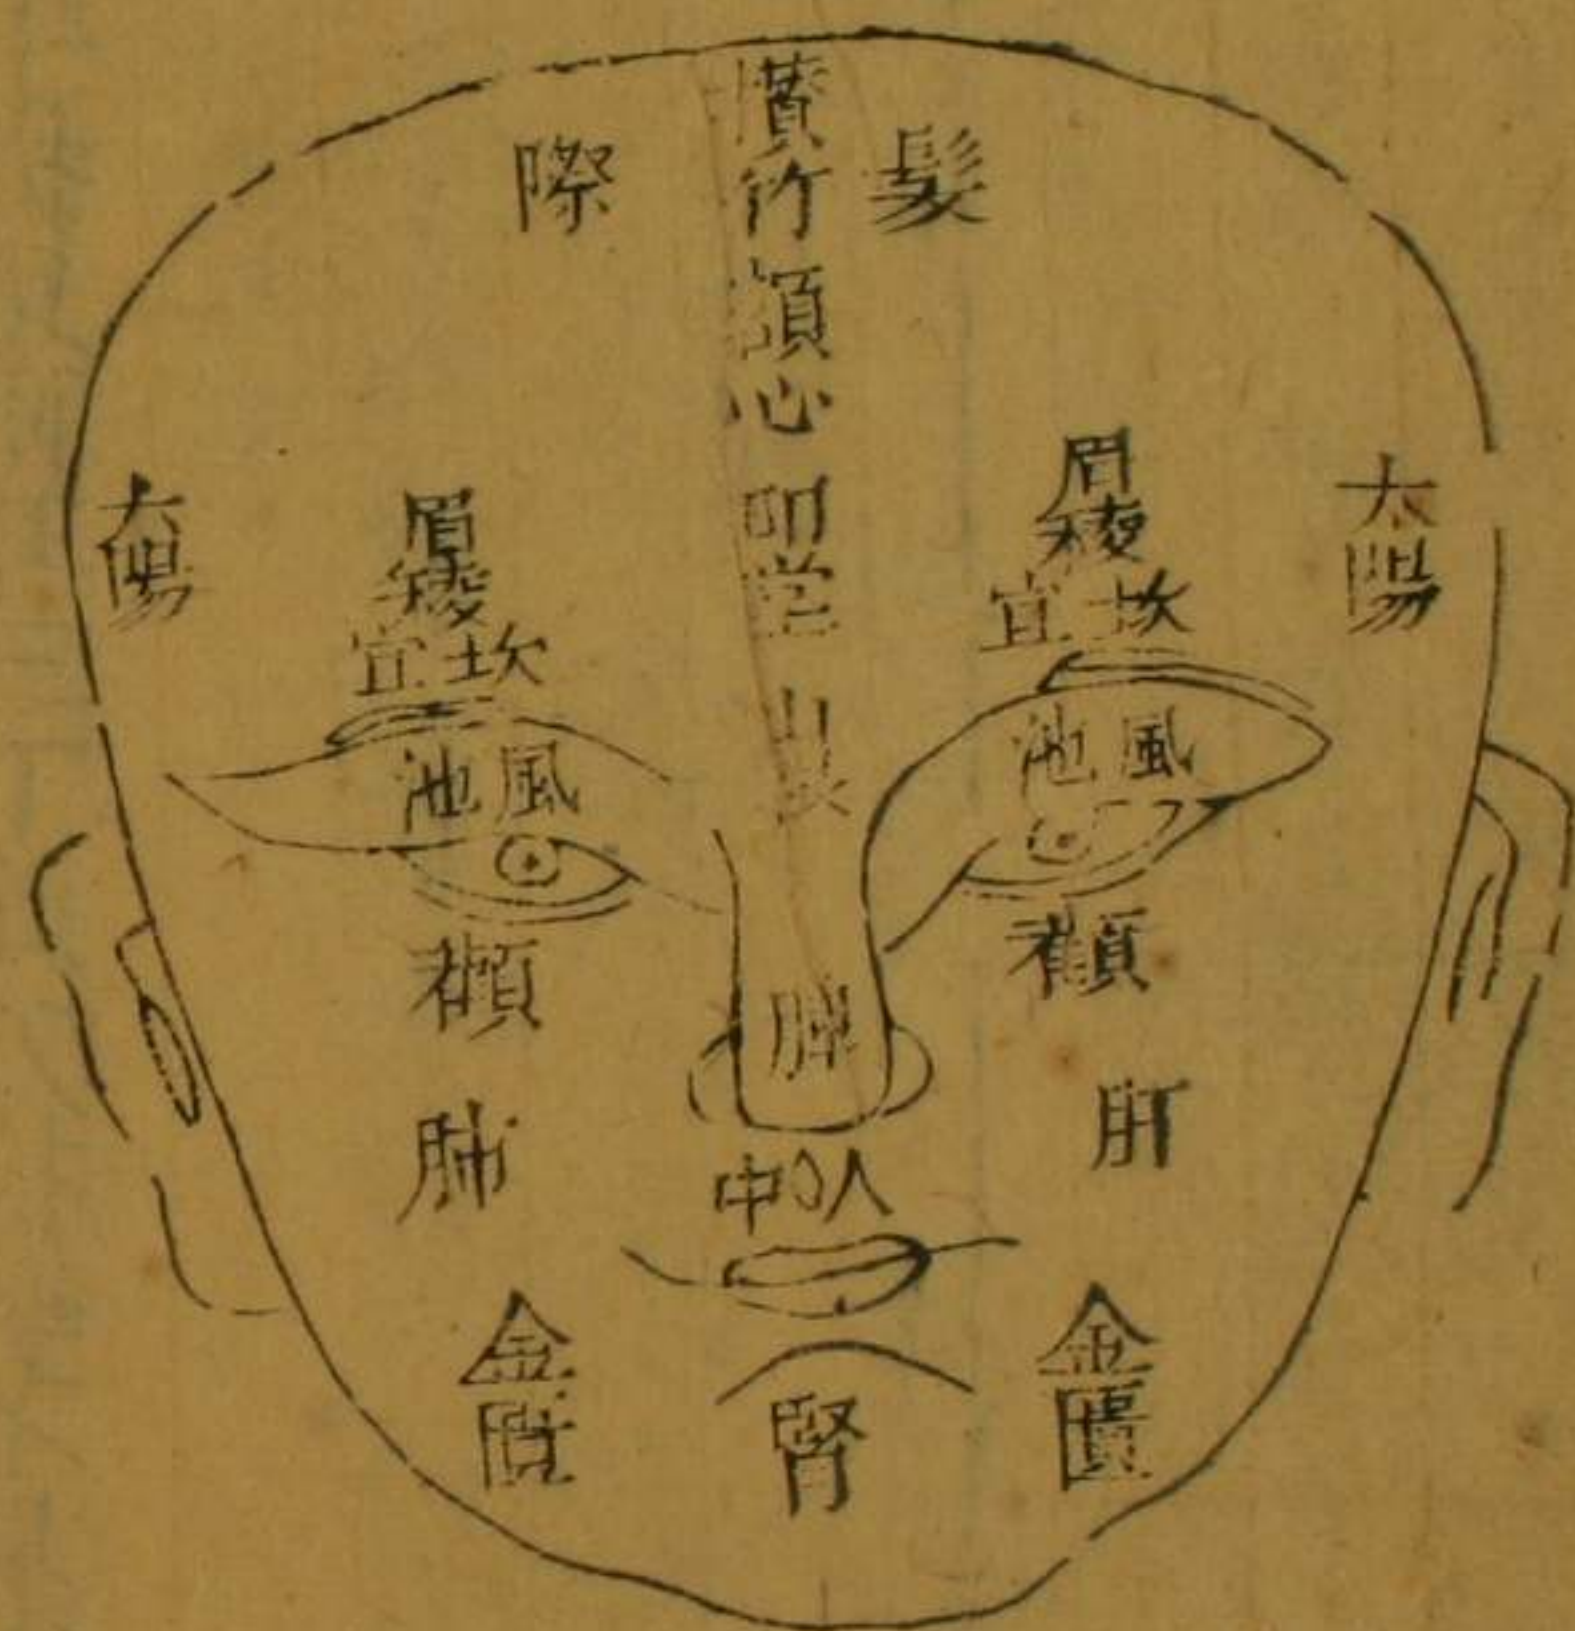 髮際
竹
額心
明堂
山根
太陽
眉稜
坎宜
風池
顴
肝
金匱
太陽
眉稜
坎宜
風池
顴
肺
金匱
脾
人中
腎